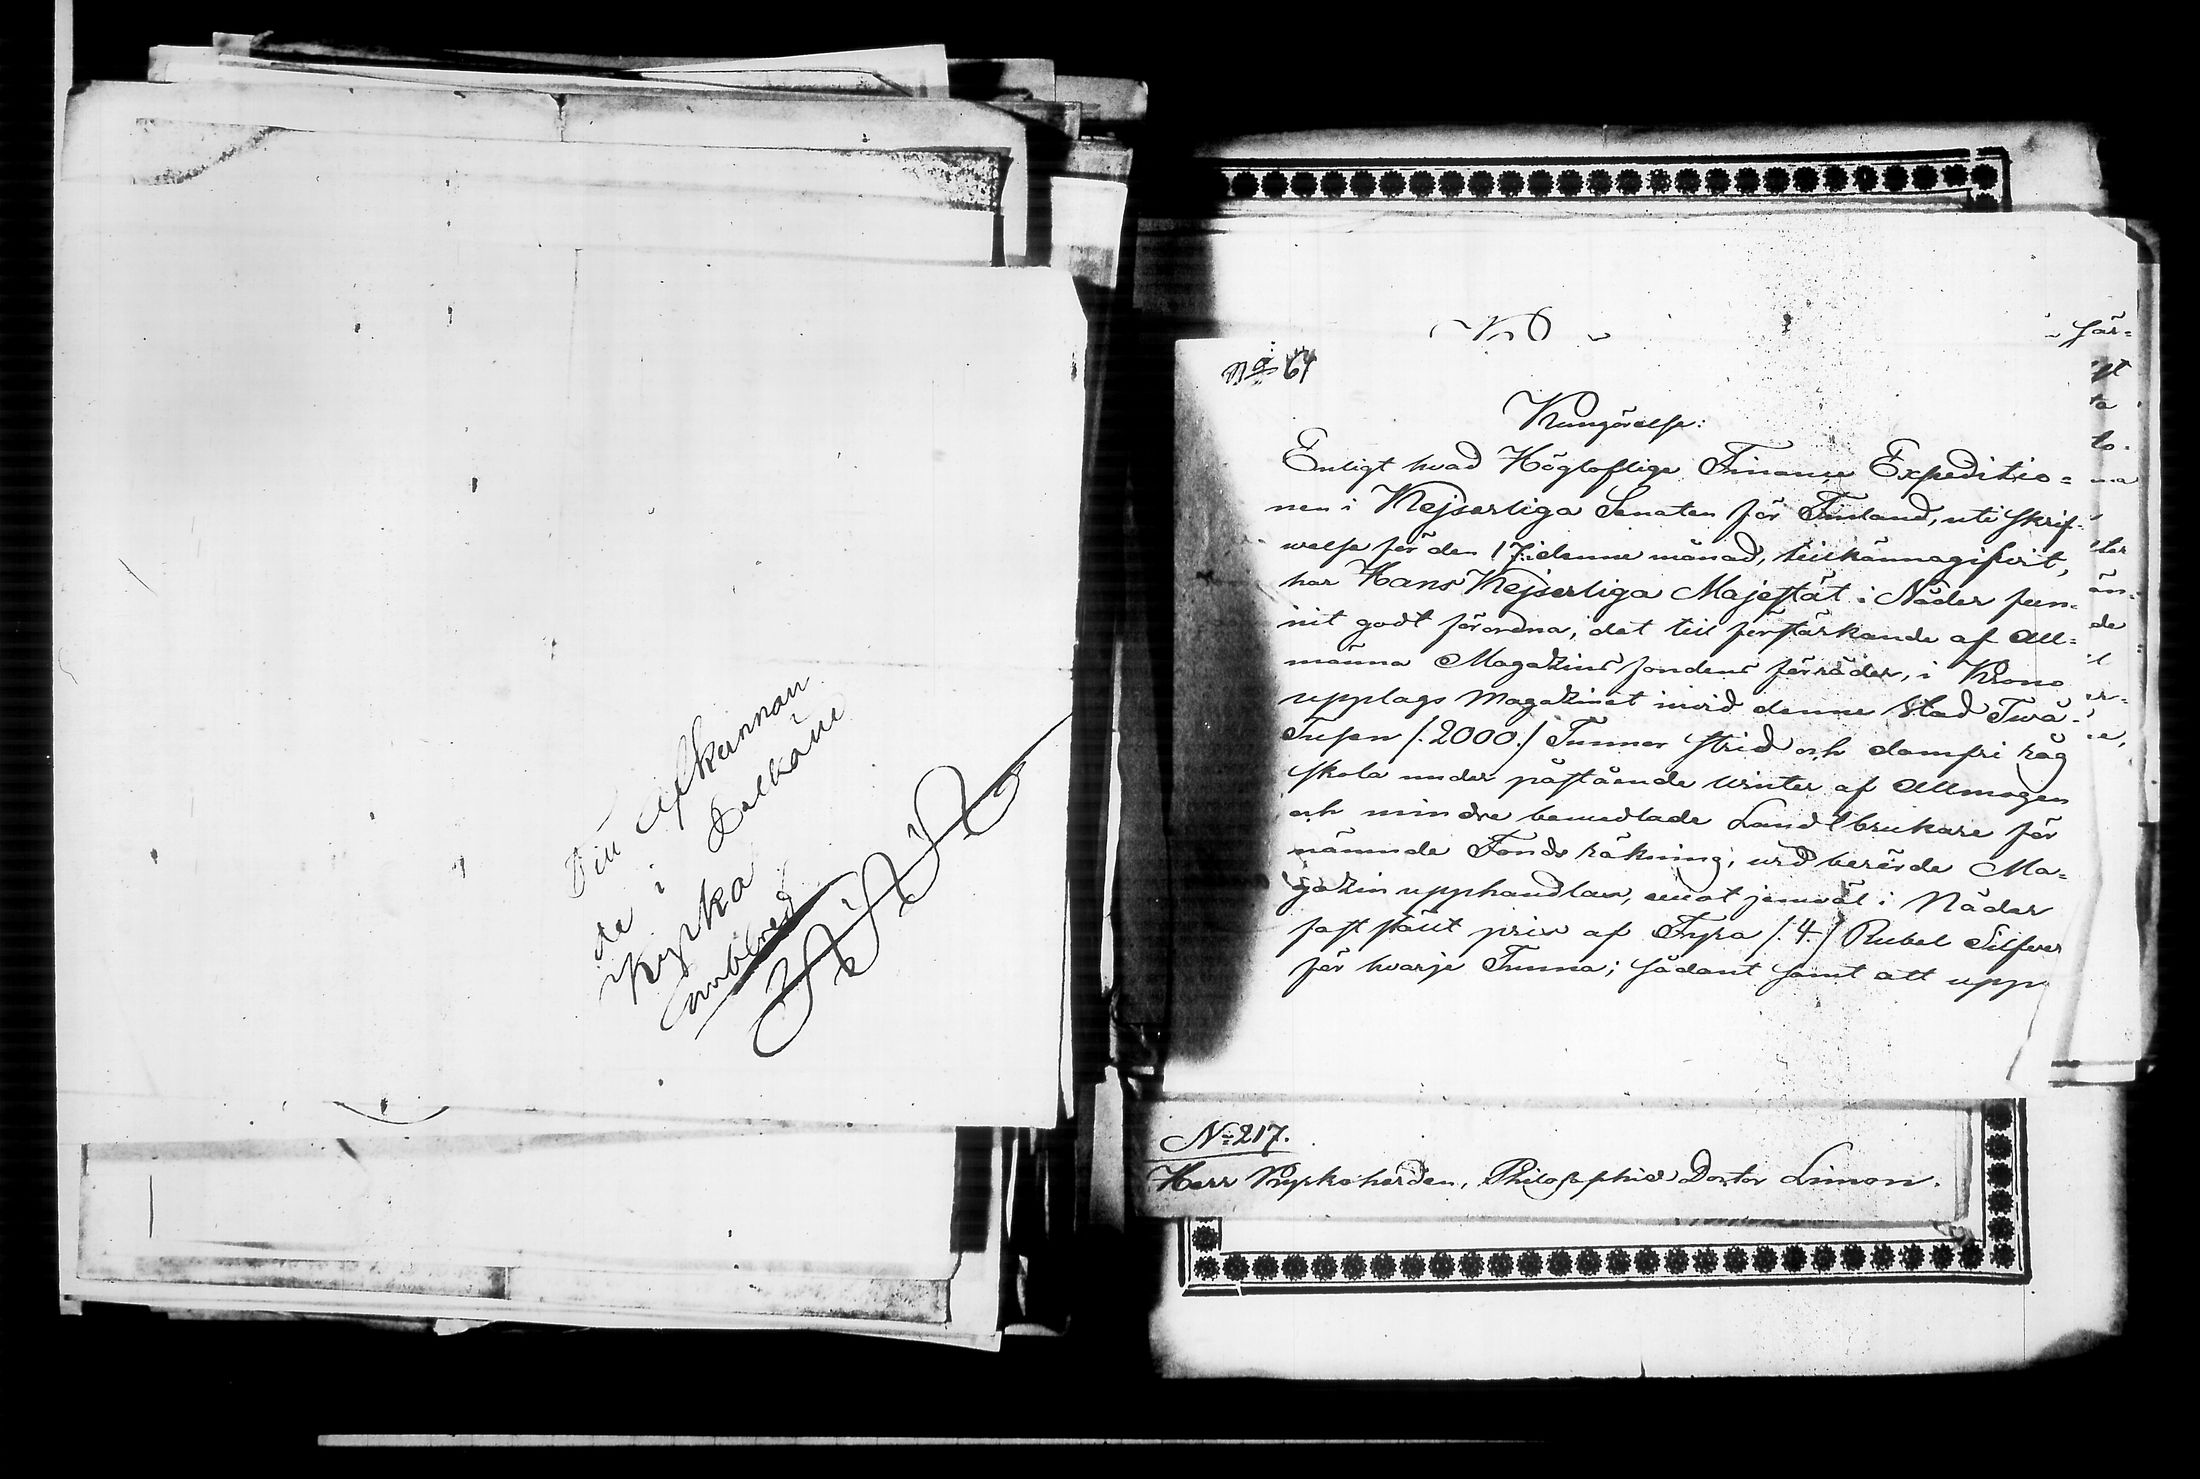 Till Afkunnan
de i Sälkäne
Kyrka
No 64
Kungörelse:
Enligt hvad Högloflige Finance Expeditio=
nen i Kejserliga Senaten för Finland, uti skrif-
welse för den 17:i denne månad, tillkännagifvit,
har Hans Kejserliga Majestät i Nåder fun-
nit godt förordna, det till förstärkande af All=
männa Magazins fondens förråder, i Krono
upplags Magazinet invid denne Stad Twå-
Tusen /. 2000./ Tunnor strid och damfri råg
skola under påstående winter af Allmogen
och mindre bemedlade Landtbrukare för
nämnde Fonds räkning, wid berörde Ma=
gazin upphandlas, emot jemväl i Nåder
fastställt pris af Fyra /. 4./ Rubel Silfver
för hvarje Tunna; sådant samt att upp
för=
ta
de
No 217.
Herr Kyrkoherden, Philosophie Doctor Limon.